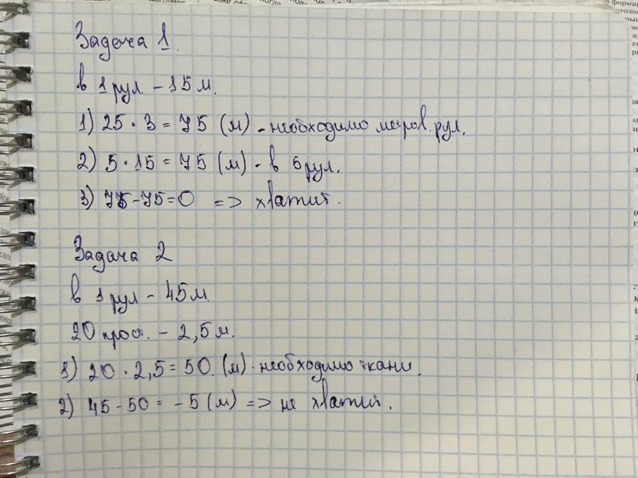 Задача 1.
в 1 рул - 15 м.
1) 25 · 3 = 75 (м) - необходимо метров рул.
2) 5 · 15 = 75 (м) - в 5 рул.
3) 75 - 75 = 0 => хватит.
Задача 2
в 1 рул - 45 м.
20 прост. - 2,5 м.
1) 20 · 2,5 = 50 (м) - необходимо ткани.
2) 45 - 50 = - 5 (м) => не хватит.